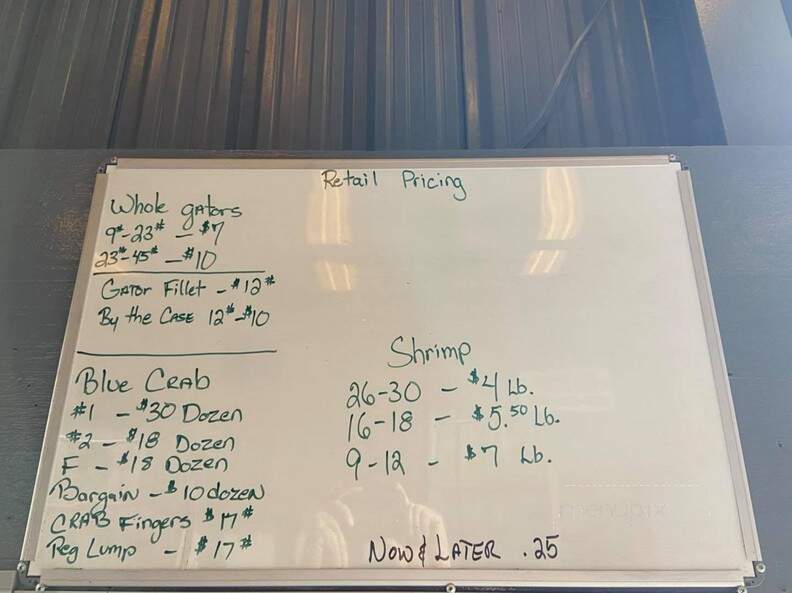 Retail Pricing
Whole gators
9#-23# - $7
23#-45# - $10
Gator Fillet - $12#
By the Case 12# - $10
Blue Crab
#1 - $30 Dozen
#2 - $18 Dozen
F - $18 Dozen
Bargain - $10 dozen
CRAB Fingers $17#
Reg Lump - $17#
Shrimp
26-30 - $4 Lb.
16-18 - $5.50 Lb.
9-12 - $7 Lb.
Now & LATER .25
menupix